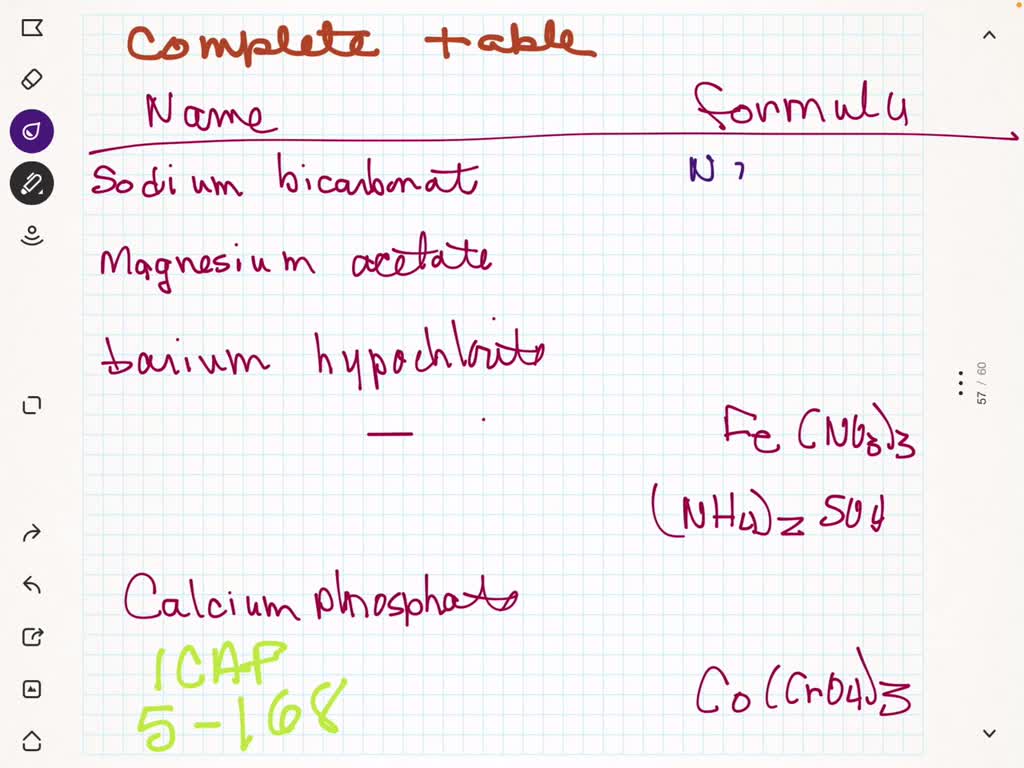 Complete table
Name formula
Sodium bicarbonat N
Magnesium acetate
barium hypochlorite
— Fe (NO3)3
(NH4)2 SO4
Calcium phosphate
1CAP
5-168
Co(CrO4)3
57 / 60